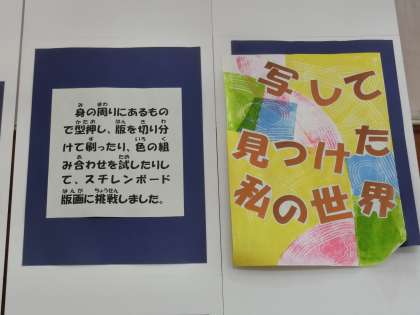 身の周りにあるもの
で型押し、版を切り分
けて刷ったり、色の組
み合わせを試したりし
て、スチレンボード
版画に挑戦しました。
写して
見つけた
私の世界